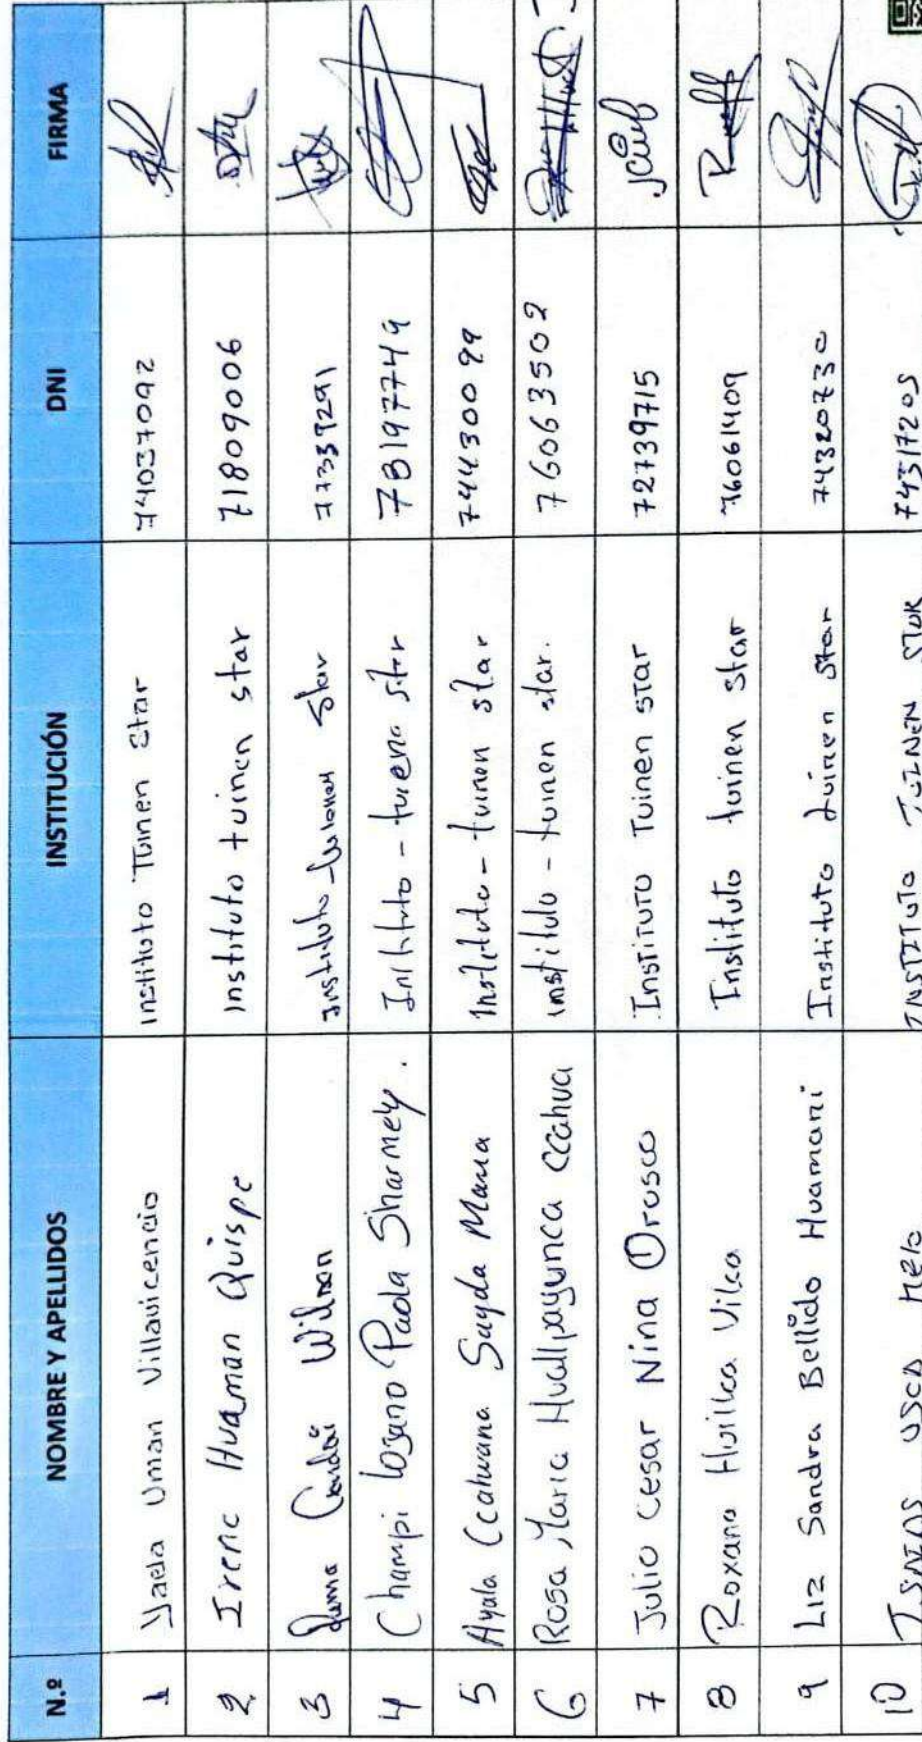 N.º NOMBRE Y APELLIDOS INSTITUCIÓN DNI FIRMA
1 Yaela Uman Villavicencio Instituto Tuinen Star 74037092
2 Irene Huaman Quispe Instituto tuinen star 71809006
3 Puma Wilson Instituto star
4 Champi Lozano Paola Sharmely. Instituto - star 78197749
5 Ayala Ccahuana Sayda Instituto - tuinen star 74430099
6 Rosa Maria Huallpayunca Ccahua instituto - tuinen star. 76063502
7 Julio Cesar Nina Orosco Instituto Tuinen star 72739715
8 Roxana Huillca Vilca Instituto tuinen star 76061409
9 Liz Sandra Bellido Huamani Instituto tuinen star 74320730
10 INSTITUTO TUINEN STUR 74317205